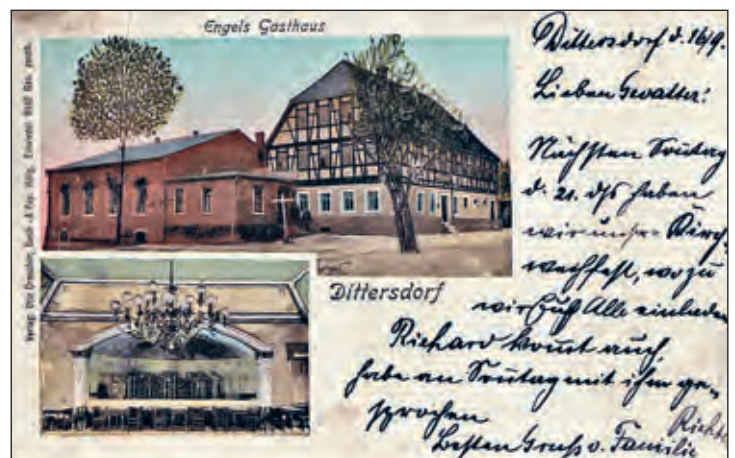 Engels Gasthaus
Dittersdorf
Dittersdorf d. 16/9.
Lieben Gevatter!
Nächsten Sontag
d. 21. d/s haben
wir unsre Kirch-
weihfest, wozu
wir Euch Alle einladen
Richard komt auch,
habe am Sontag mit ihm ge-
sprochen
Besten Gruß v. Familie